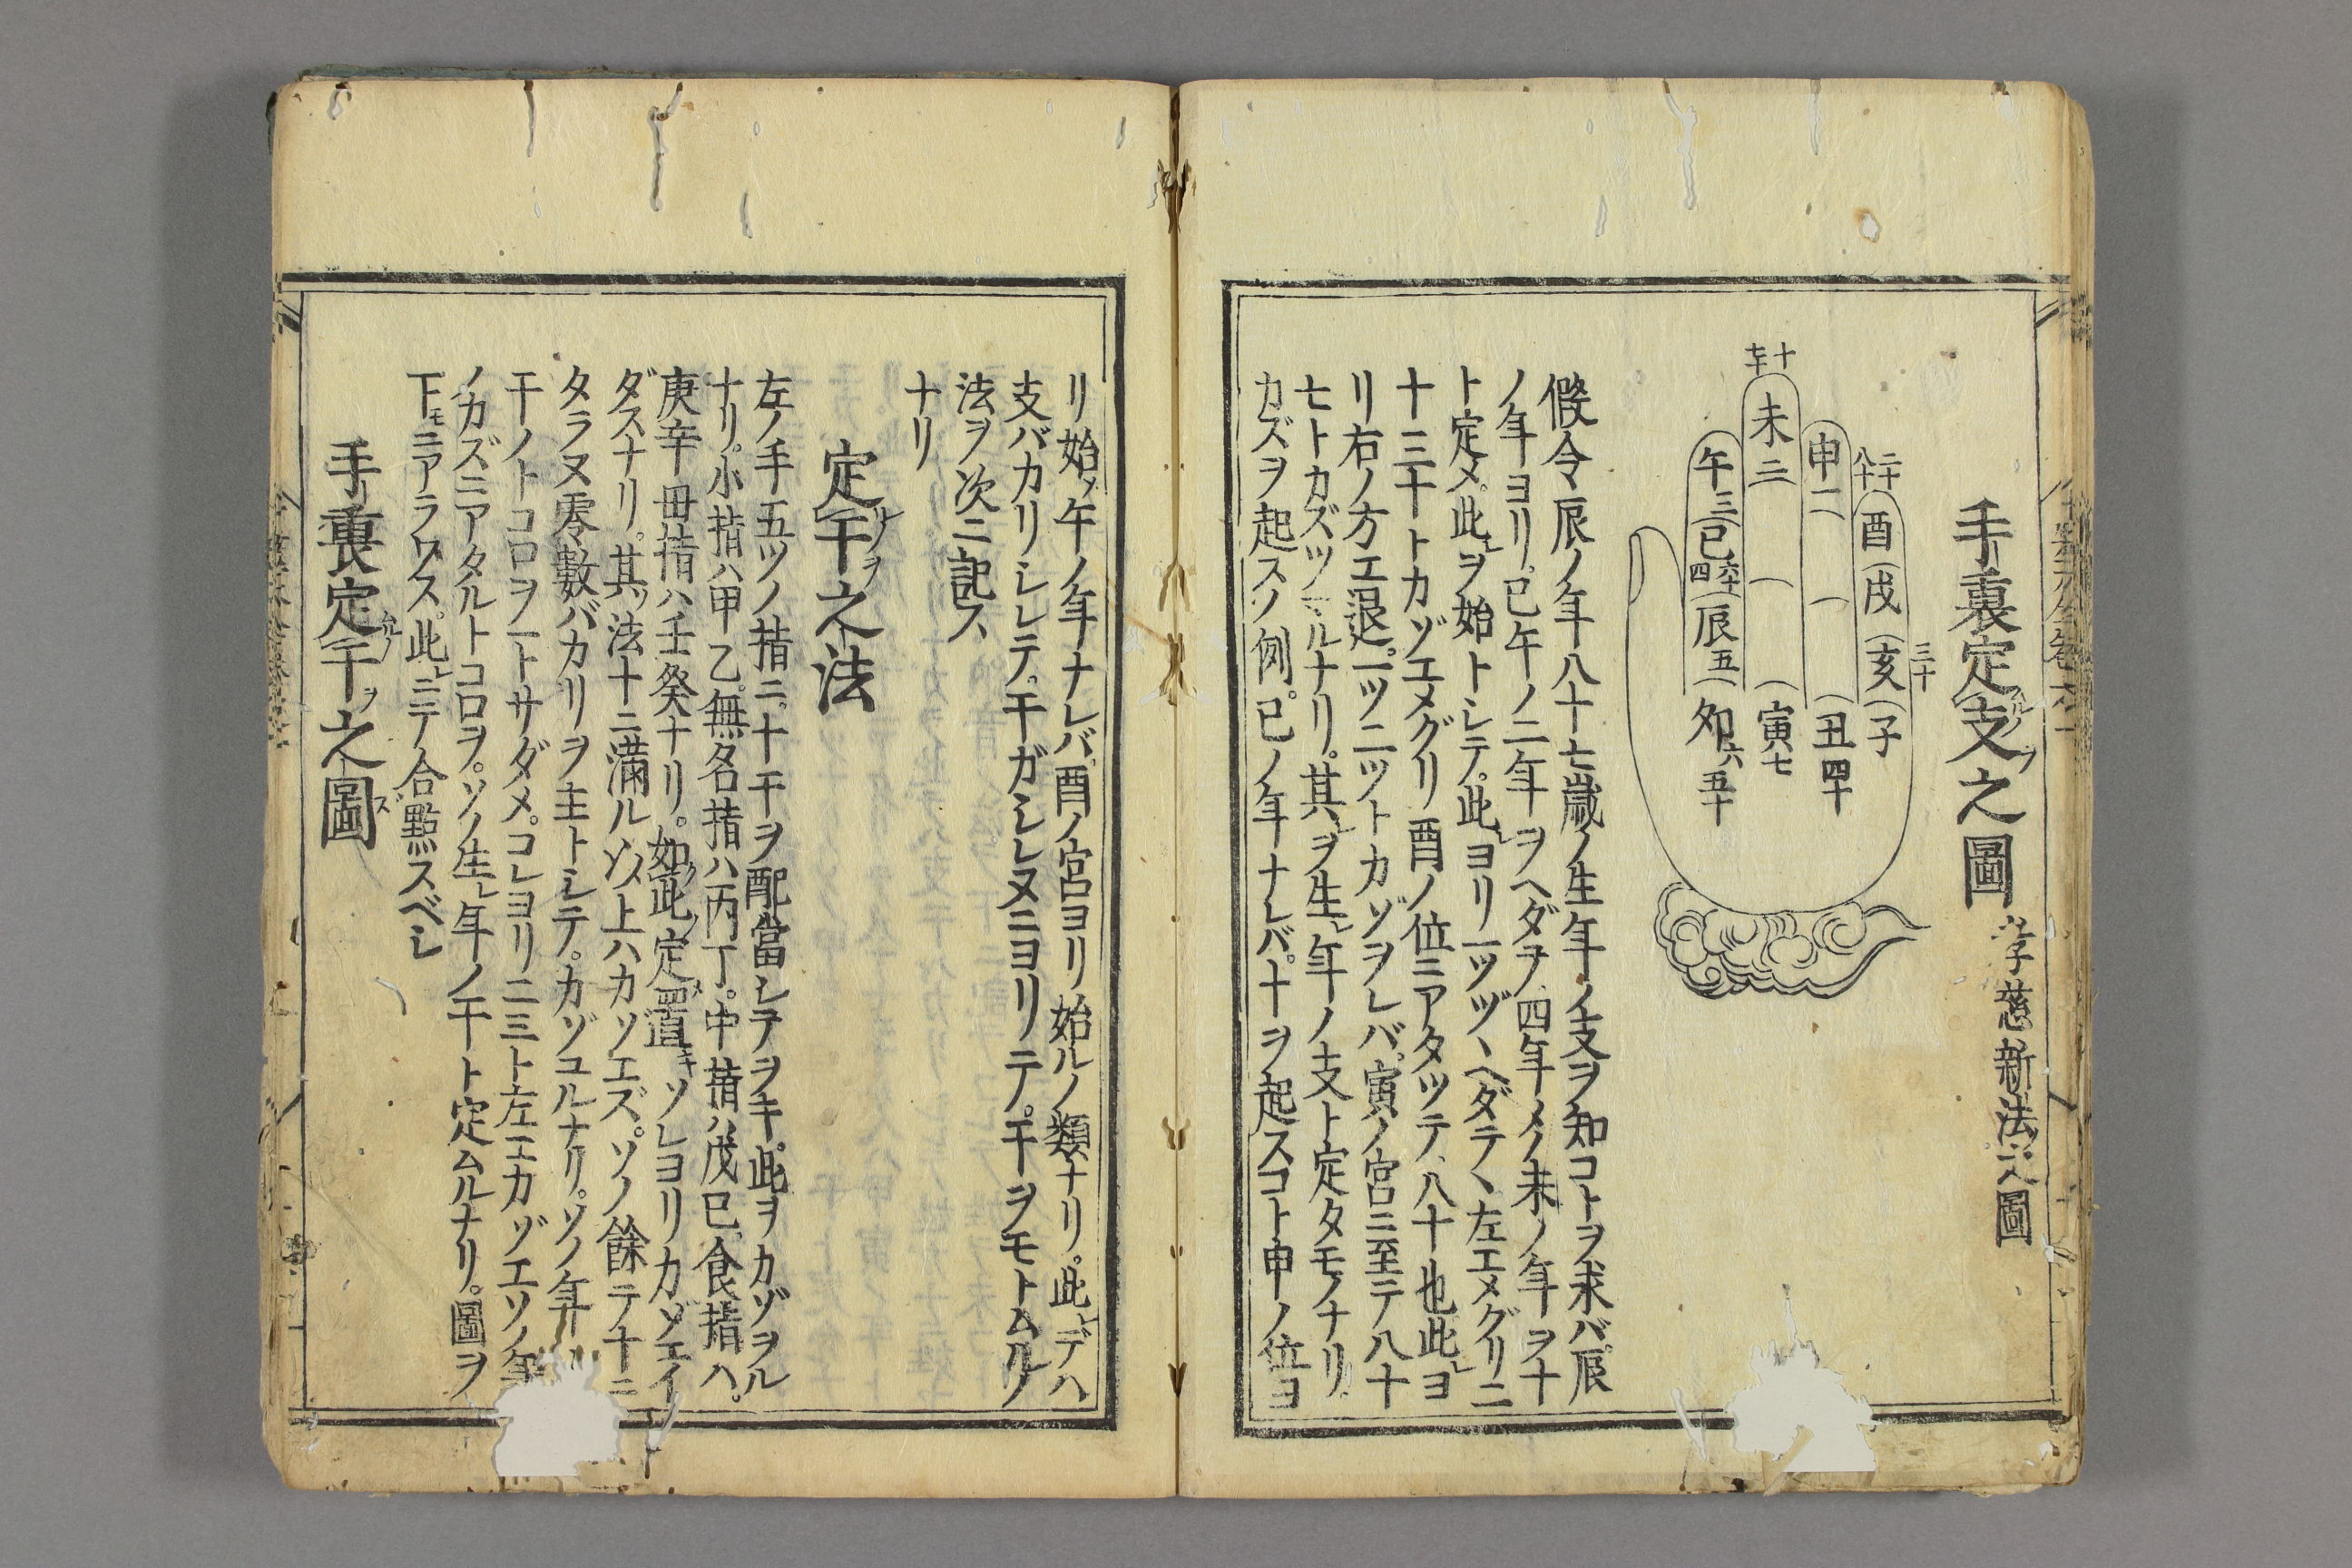 手裏定支之圖
孝慈新法之圖
二十
八十
酉
戌
亥
子
三十
申二
一
丑四十
十
七十
未二
一
寅七
午三
巳四
六十
辰五
夘六
五十
假令辰ノ年八十七歳ノ生年ノ支ヲ知コトヲ求バ辰
ノ年ヨリ。巳午ノ二年ヲヘダヲ、四年メノ未ノ年ヲ十
ト定メ。此レヲ始トシテ。此レヨリ一ツヅヽヘダテヽ左エメグリ二
十三十トカゾエメグリ酉ノ位ニアタツテ、八十也此レヨ
リ右ノ方エ退。一ツ二ツトカゾヲレバ。寅ノ宮ニ至テ八十
七トカズツマルナリ。其レヲ生レ年ノ支ト定タモノナリ。
カズヲ起スノ例。巳ノ年ナレバ。十ヲ起スコト申ノ位ヨ
リ始メ午ノ年ナレバ。酉ノ宮ヨリ始ルノ類ナリ。此レデハ
支バカリシレテ。干ガシレヌニヨリテ。干ヲモトムルノ
法ヲ次ニ記ス
ナリ
定干之法
左ノ手五ツノ指ニ。十干ヲ配當シテヲキ。此ヲカゾヲル
ナリ。小指ハ甲乙。無名指ハ丙丁。中指ハ戊巳。食指ハ。
庚辛。毋指ハ壬癸ナリ。如此定置キソレヨリカゾエイ
ダスナリ。其ノ法十ニ滿ル以上ハカゾエズ。ソノ餘テ十ニ
タラヌ零數バカリヲ主トシテ。カゾユルナリ。ソノ年ノ
干ノトコロヲ一トサダメ。コレヨリ二三ト左エカゾエソノ年
ノカズニアタルトコロヲ。ソノ生レ年ノ干ト定ムルナリ。圖ヲ
下モニアラワス。此レニテ合點スベシ
手裏定干之圖